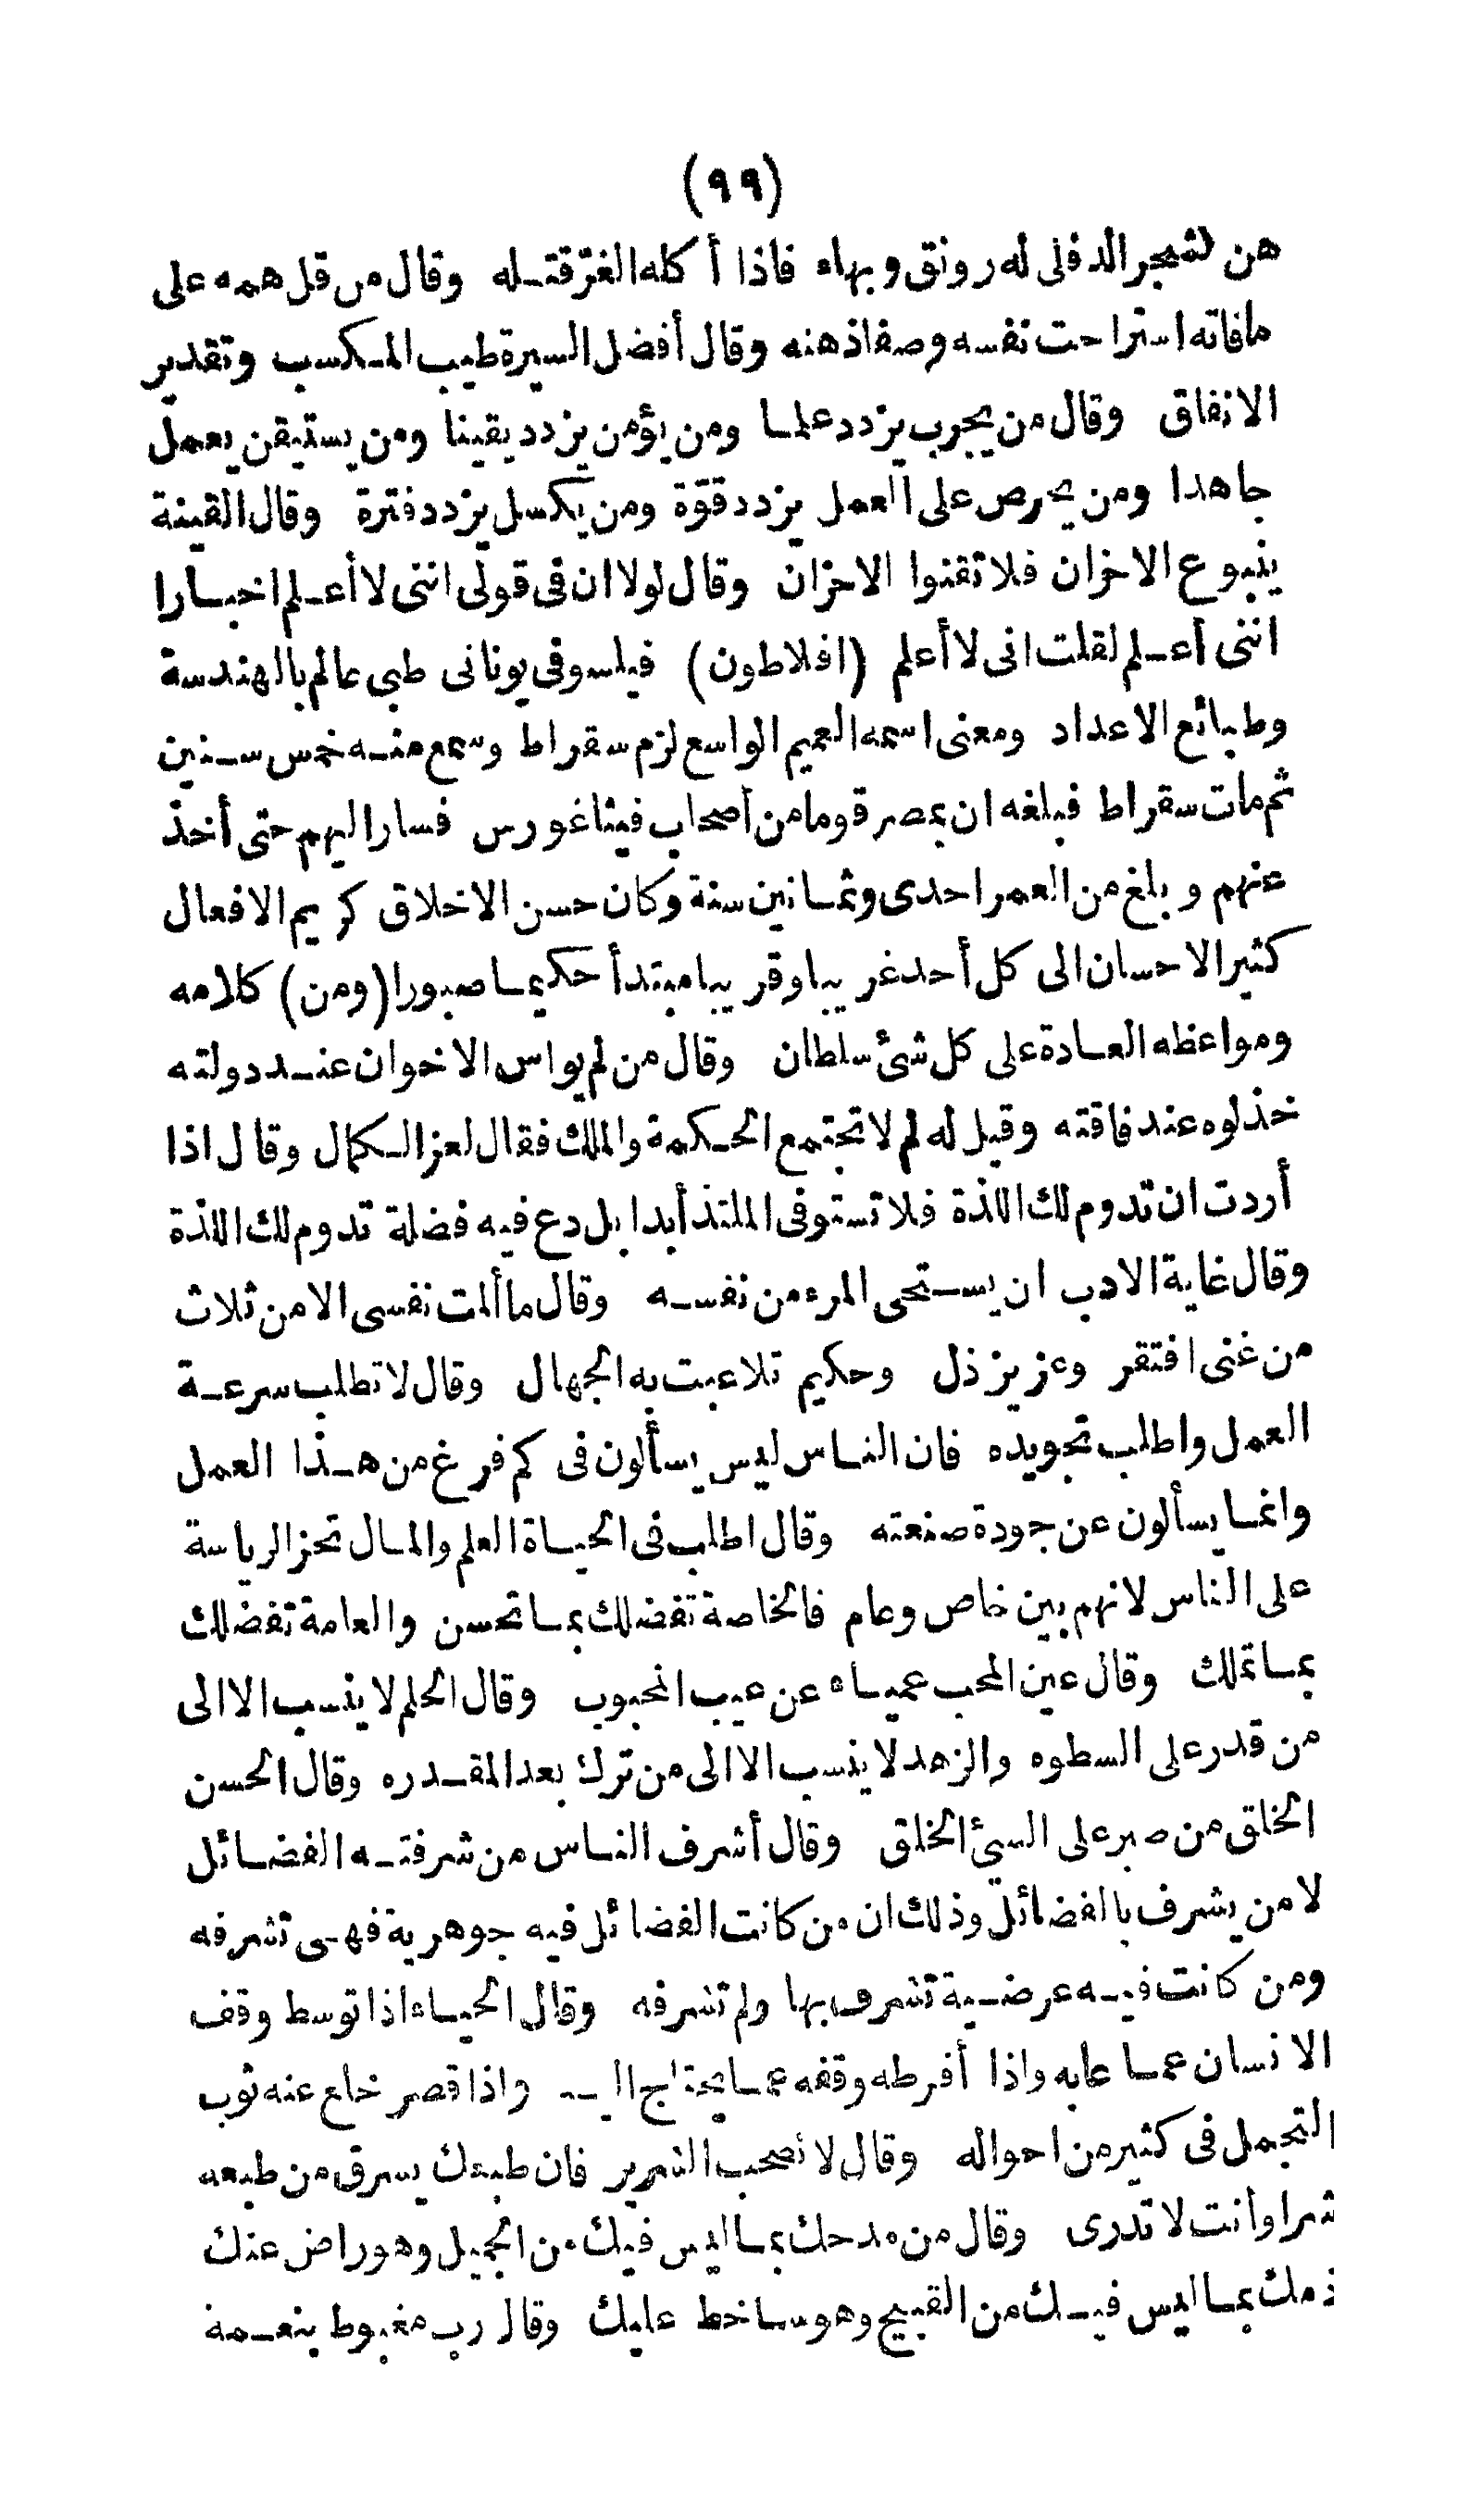 (٩٩)
هن كشجر الدفلى له رونق وبهاء فاذا أكله الغر قتله وقال من قل همه على
مافاته استراحت نفسه وصفاذهنه وقال أفضل السيرة طيب المكسب وتقدير
الانفاق وقال من يجرب يزدد علما ومن يؤمن يزدد يقينا ومن يستيقن يعمل
جاهدا ومن يحرص على العمل يزدد قوّة ومن يكسل يزدد فترة وقال القينة
ينبوع الاخزان فلاتقنوا الاحزان وقال لولا ان فى قولى اننى لا أعلم اخبارا
اننى أعلم لقلت انى لا أعلم (افلاطون) فيلسوفى يونانى طبى عالم بالهندسة
وطبائع الاعداد ومعنى اسمه العميم الواسع لزم سقراط وسمع منه خمس سنين
ثم مات سقراط فبلغه ان بمصر قوما من أصحاب فيثاغورس فسار اليهم حتى أخذ
عنهم وبلغ من العمر احدى وثمانين سنة وكان حسن الاخلاق كريم الافعال
كثير الاحسان الى كل أحد غريبا وقريبا مبتدأ حكيما صبورا (ومن) كلامه
ومواعظه العادة على كل شئ سلطان وقال من لم يواس الاخوان عند دولته
خذلوه عند فاقته وقيل له لم لا تجتمع الحكمة والملك فقال لعز الكمال وقال اذا
أردت ان تدوم لك اللذة فلا تستوفى الملتذ أبدا بل دع فيه فضلة تدوم لك اللذة
وقال غاية الادب ان يستحى المرء من نفسه وقال ما ألمت نفسى الا من ثلاث
من غنى افتقر وعزيز ذل وحكيم تلاعبت به الجهال وقال لا تطلب سرعة
العمل واطلب تجويده فان الناس ليس يسألون فى كم فرغ من هذا العمل
وانما يسألون عن جودة صنعته وقال اطلب فى الحياة العلم والمال تحز الرياسة
على الناس لانهم بين خاص وعام فالخاصة تفضلك بما تحسن والعامة تفضلك
بما تملك وقال عين المحب عمياء عن عيب المحبوب وقال الحلم لا ينسب الا الى
من قدر على السطوه والزهد لا ينسب الا الى من ترك بعد المقدره وقال الحسن
الخلق من صبر على السيئ الخلق وقال أشرف الناس من شرفته الفضائل
لا من يشرف بالفضائل وذلك ان من كانت الفضائل فيه جوهرية فهى تشرفه
ومن كانت فيه عرضية تشرف بها ولم تشرفه وقال الحياء اذا توسط وقف
الانسان عما عابه واذا أفرطه وقفه عما يحتاج اليه واذا قصر خلع عنه ثوب
التجمل فى كثير من احواله وقال لا تصحب الشرير فان طبعك يسرق من طبعه
شرا وأنت لا تدرى وقال من مدحك بما ليس فيك من الجميل وهو راض عنك
ذمك بما ليس فيك من القبيح وهو ساخط عليك وقال رب مغبوط بنعمة